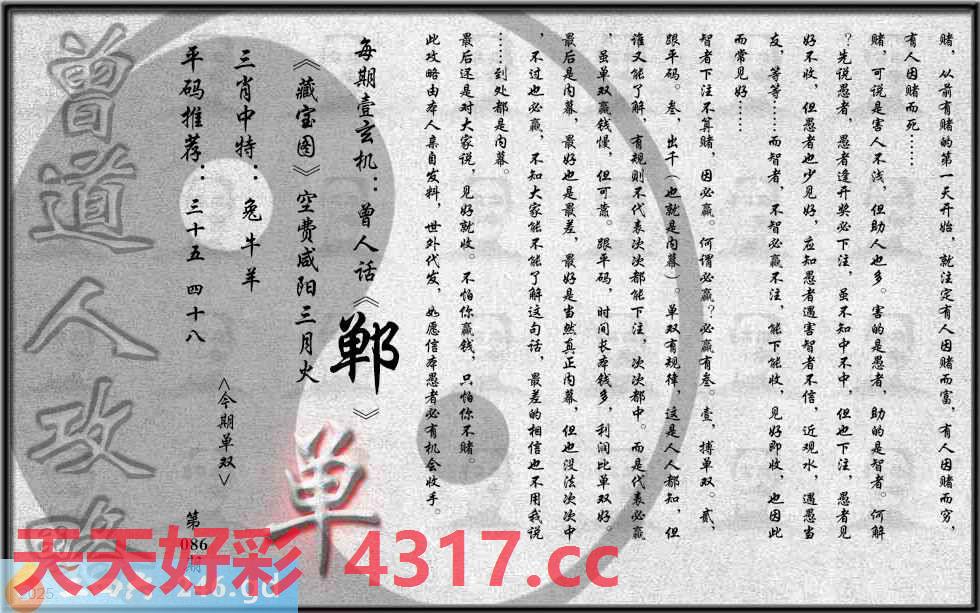 赌，从前有赌的第一天开始，就注定有人因赌而富，有人因赌而穷，
有人因赌而死……
赌，可说是害人不浅，但助人也多。害的是愚者，助的是智者。何解
？先说愚者，愚者逢开奖必下注，虽不知中不中，但也下注，愚者见
好不收，但愚者也少见好，应知愚者遇害智者不信，近观水，遇愚当
友，等等……而智者，不智必赢不注，能下能收，见好即收，也因此
而常见好……
智者下注不算赌，因必赢。何谓必赢？必赢有叁。壹，搏单双。贰，
跟平码。叁，出千（也就是内幕）。单双有规律，这是人人都知，但
谁又能了解，有规则不代表次次都能下注，次次都中。而是代表必赢
，虽单双赢钱慢，但可靠。跟平码，时间长本钱多，利润比单双好。
最后是内幕，最好也是最差，最好是当然真正内幕，但也没法次次中
，不过也必赢，不知大家能不能了解这句话，最差的相信也不用我说
……到处都是内幕。
最后还是对大家说，见好就收。不怕你赢钱，只怕你不赌。
此攻略由本人亲自发料，世外代发，如愿信本愚者必有机会收手。
每期壹玄机：曾人话《郸》
《藏宝图》空费咸阳三月火
三肖中特：兔 牛 羊
平码推荐：三十五 四十八
<今期单双>
单
第
086
期
曾道人攻略
天天好彩 4317.cc
2025
246.gd